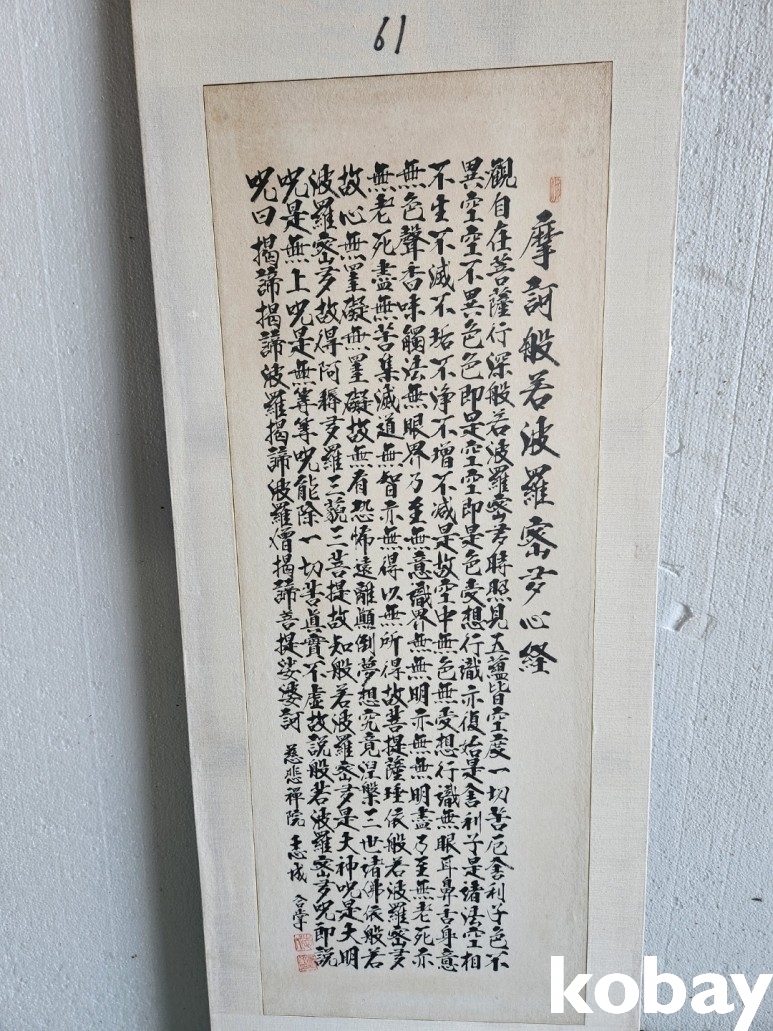 61
摩訶般若波羅密多心経
觀自在菩薩行深般若波羅密多時照見五蘊皆空度一切苦厄舍利子色不
異空空不異色色即是空空即是色受想行識亦復如是舍利子是諸法空相
不生不滅不垢不淨不增不減是故空中無色無受想行識無眼耳鼻舌身意
無色聲香味觸法無眼界乃至無意識界無無明亦無無明盡乃至無老死亦
無老死盡無苦集滅道無智亦無得以無所得故菩提薩埵依般若波羅密多
故心無罣礙無罣礙故無有恐怖遠離顚倒夢想究竟涅槃三世諸佛依般若
波羅密多故得阿耨多羅三藐三菩提故知般若波羅密多是大神呪是大明
呪是無上呪是無等等呪能除一切苦眞實不虛故說般若波羅密多呪即說
呪曰 揭諦揭諦波羅揭諦波羅僧揭諦菩提娑婆訶 慈悲禪院 合掌
kobay